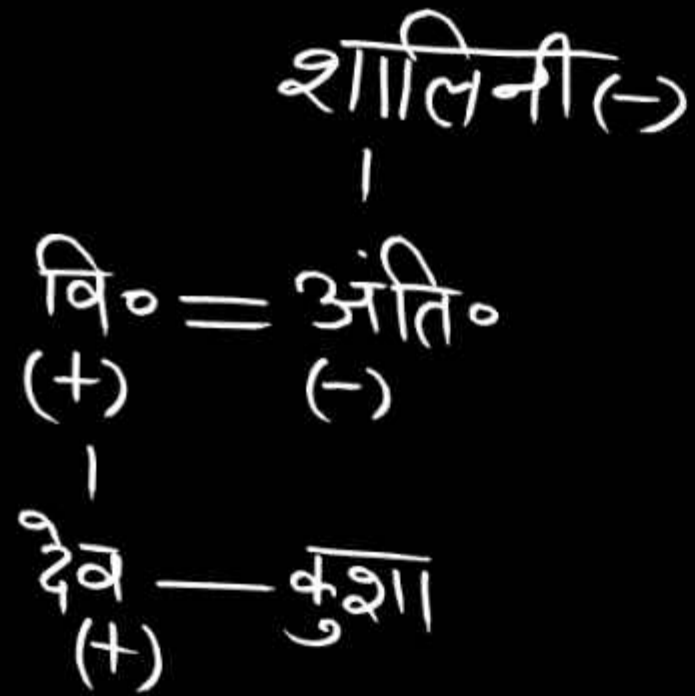 शालिनी (-)
|
वि० = अंति०
(+) (-)
|
देव — कुशा
(+)